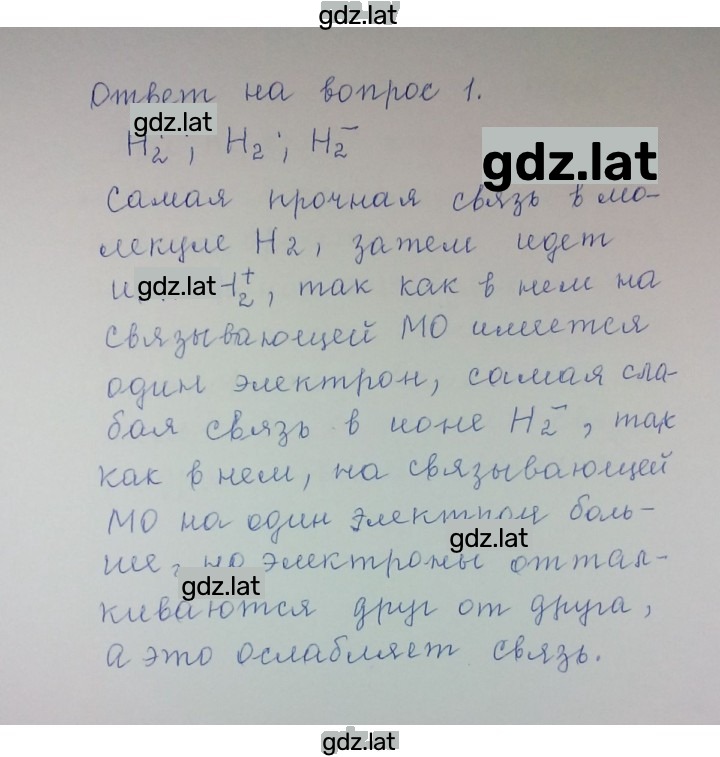 gdz.lat
Ответ на вопрос 1.
gdz.lat
H₂ ; H₂ ; H₂⁻
gdz.lat
Самая прочная связь в мо-
лекуле H₂, затем идет
gdz.lat H₂⁺, так как в нем на
связывающей МО имеется
один электрон, самая сла-
бая связь в ионе H₂⁻, так
как в нем, на связывающей
МО на один электрон боль-
gdz.lat
ше, но электроны оттал-
gdz.lat
киваются друг от друга,
а это ослабляет связь.
gdz.lat